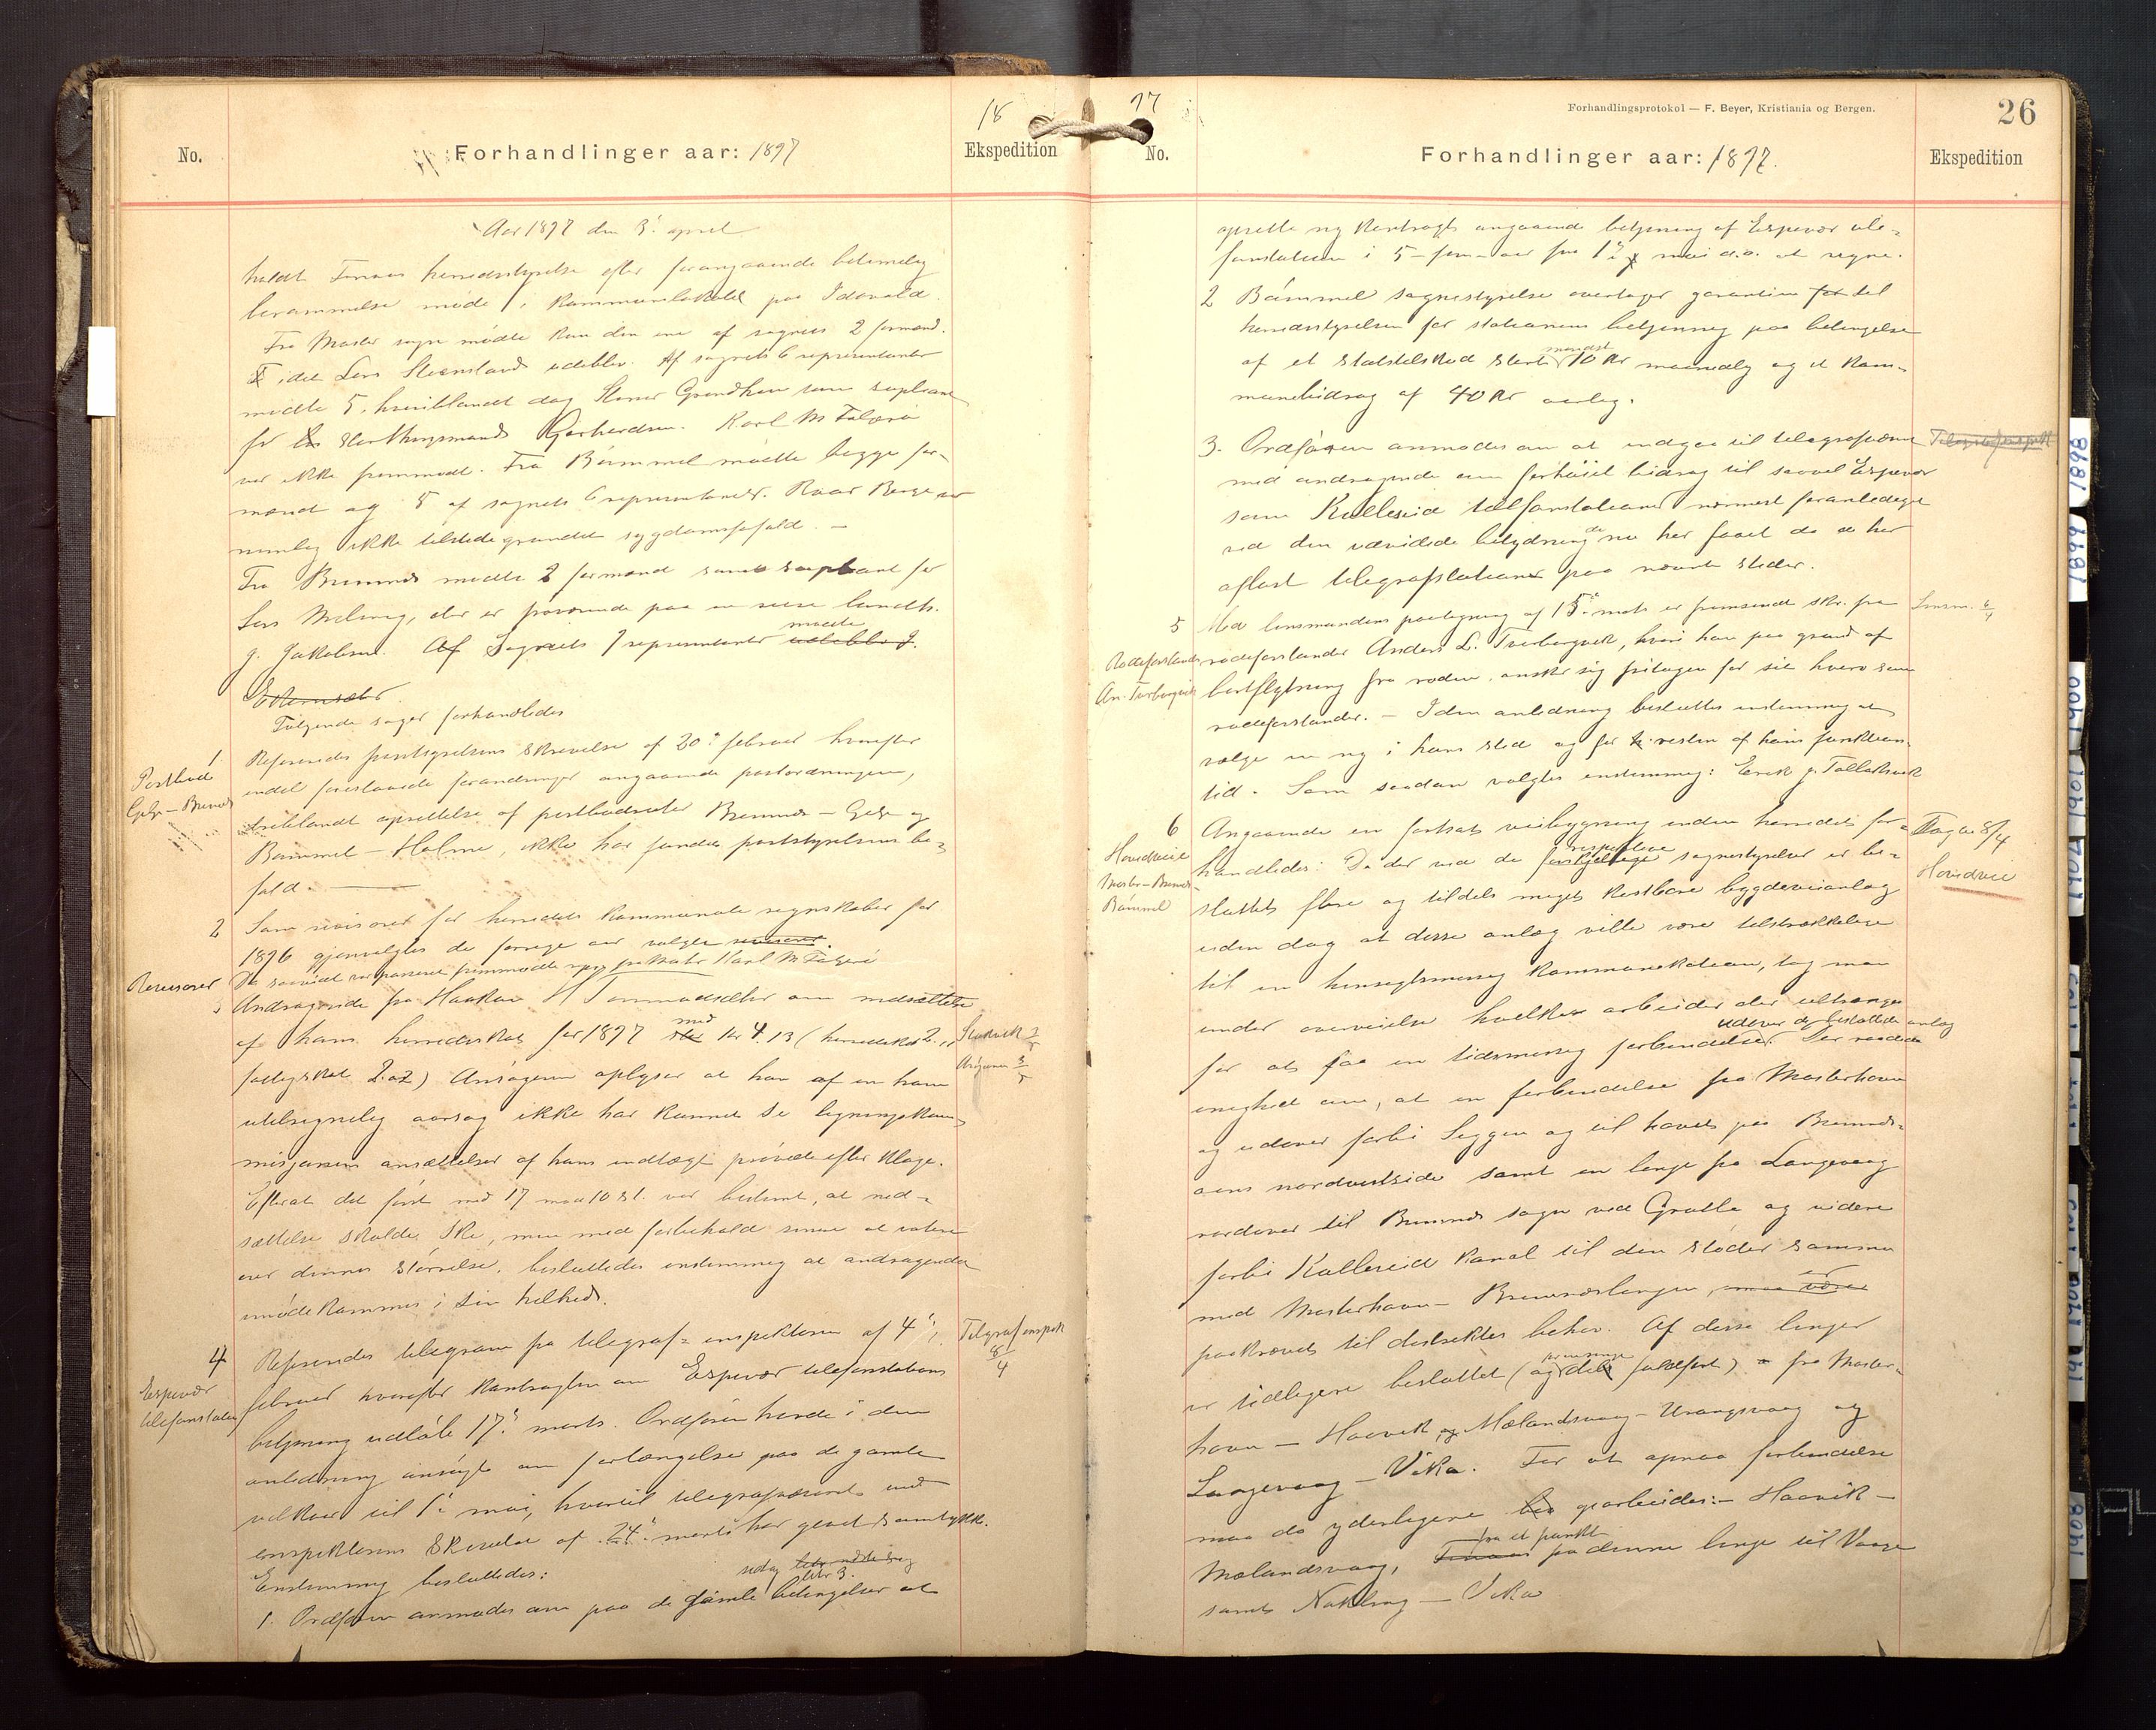 18
No.
Forhandlinger aar: 1897
Ekspedition
Aar 1897 den 3' april
holdt Finaas herredsstyrelse efter forangaaende betimelig
berammelse møde i kommunelokalet paa Idavald.
Fra Moster sogn mødte kun den ene af sognets 2 formænd.
idet Lars Steensland udeblev. Af sognets 6 repræsentanter
mødte 5, hvoriblandt dog Stener Grindheim som supleant
for Storthingsmand Gerhardsen. Karl M Folgerø
var ikke fremmødt. Fra Bømmel mødte begge for-
mænd og 5 af sognets 6 repræsentanter. Roar Berge var
nemlig ikke tilstede grundet sygdomsforfald. —
Fra Bremnes mødte 2 formænd samt supleant for
Lars Meling, der er fraværende paa en reise landh.
J. Jakobsen. Af Sognets 7 repræsentanter mødte udeblev J.
Følgende sager forhandledes
1
Postbud
Geln – Bremnes
Refereredes poststyrelsens skrivelse af 20' februar hvorefter
endel foreslaaede forandringer angaaende postordningen,
iblandt oprettelse af postbudruter Bremnes – Geln og
Bømmel – Holme, ikke har fundet poststyrelsens bi-
fald. —
2
Revisorer
Som revisorer for herredets kommunale regnskaber for
1896 gjenvalgtes de forrige aar valgte revisorer.
Da saavidt var passeret fremmødte repræsentanten Karl M Folgerø
3
Andragende fra Haakon H Tormodsæter om nedsættelse
af hans herredsskat for 1897 med kr 4.13 (herredsskat 2.11
fattigskat 2.02) Ansøgeren oplyser at han af en ham
utilregnelig aarsag ikke har kunnet se ligningskom-
misjonens ansættelse af hans indtægt prøvede efter klage.
Efterat det først med 17 mod 10 st. var bestemt, at ned-
sættelse skulde ske, men med forbehold senere at votere
over dennes størrelse, besluttedes enstemmig at andragendet
imødekommes i sin helhed.
4
Espevær
telefonstation
Telegrafinspek
8/4
Refereredes telegram fra telegraf-inspektøren af 4'
februar hvorefter kontrakten om Espevær telefonstations
betjening udløb 17' marts. Ordføren havde i den
anledning ansøgt om forlængelse paa de gamle
vilkaar til 1' mai, hvortil telegrafvæsenet ved
inspektørens skrivelse af 24' marts har givet samtykke.
Enstemmig besluttedes:
1. Ordføren anmodes om paa de gamle betingelser at
17
Forhandlingsprotokol — F. Beyer, Kristiania og Bergen.
26
No.
Forhandlinger aar: 1897.
Ekspedition
oprette ny kontrakt angaaende betjening af Espevær tele-
fonstation i 5 – fem – aar fra 1' mai d.a. at regne.
2 Bømmel sognestyrelse overtager garantien for til
herredsstyrelsen for stationens betjening paa betingelse
af et statstilskud stort mindst 10 kr maanedlig og et kom-
munebidrag af 40 kr aarlig.
3. Ordføren anmodes om at indgaa til telegrafvæsenet
med andragende om forhøiet bidrag til saavel Espevær
som Kulleseid telefonstationer nærmest foranlediget
ved den udvidede betydning de nu har faaet da de har
afløst telegrafstationer paa nævnte steder.
5
Rodeforstander
An. Tverborgvik
Lensm. 6/4
Med lensmandens paategning af 15' mats er fremsendt skr. fra
rodeforstander Anders L. Tverborgvik, hvori han paa grund af
bortflytning fra roden ønsker sig fritagen for sit hverv som
rodeforstander. — I den anledning besluttes enstemmig at
vælge en ny i hans sted og for resten af hans funktions-
tid. Som saadan valgtes enstemmig: Erik J. Tollaksvik
6
Hovedveie
Moster – Bremnes
Bømmel
8/4
Hovedvei
Angaaende en fortsat veibygning inden herredet for-
handledes: Da der ved de forskjellige respektive sognestyrelser er be-
sluttet flere og tildels meget kostbare bygdeveianlæg
uden dog at disse anlæg ville være tilstrækkelige
til en hensigtsmessig kommunikation, tog man
under overveielse hvilke arbeider der udtrænges
udover de besluttede anlæg
for at faa en tidsmessig forbindelse. Der raadede
enighed om, at en forbindelse fra Mosterhavn
og udover forbi Siggen og til havet paa Bremnes-
øens nordvestside samt en linje fra Langevaag
nordover til Bremnes sogn ved Grutle og videre
forbi Kulleseid kanal til den støder sammen
med Mosterhavn – Bremneslinjen, er
paakrævet til distriktets behov. Af disse linjer
er tidligere besluttet (og tildels fuldført) fra Moster-
havn – Haavik og Mælandsvaag – Urangsvaag og
Langevaag – Vika. For at opnaa forbindelse
maa da yderligere oparbeides: – Haavik –
Mælandsvaag, fra et punkt paa denne linje til Vaage
samt Nakling – Vika
1898
1899
1900
1901
1902
1903
1905
1906
1908